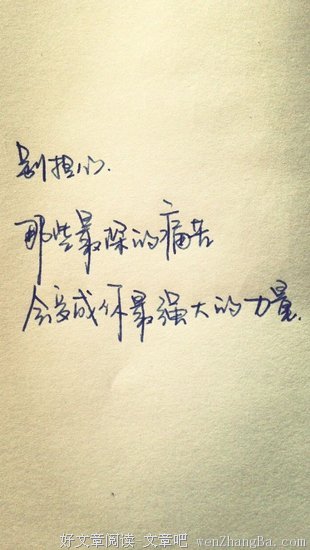 别担心.
那些最深的痛苦
会变成你最强大的力量.
好文章阅读 文章吧 wenZhangBa.com